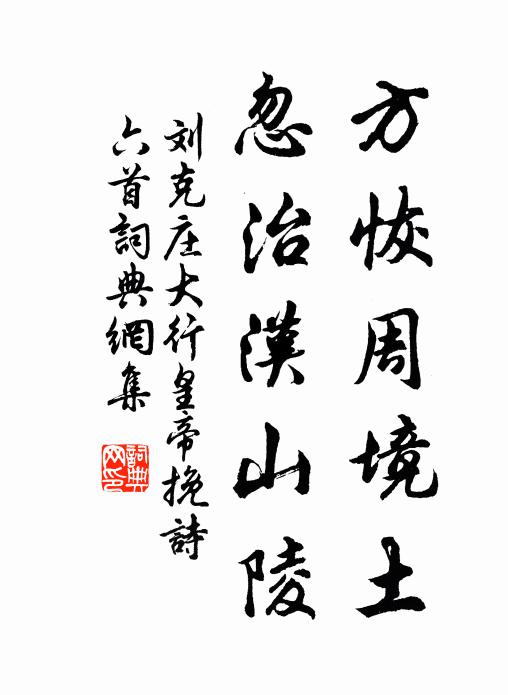 方恢周境土
忽治漢山陵
刘克庄大行皇帝挽詩
六首詞典網集
詞典
网印